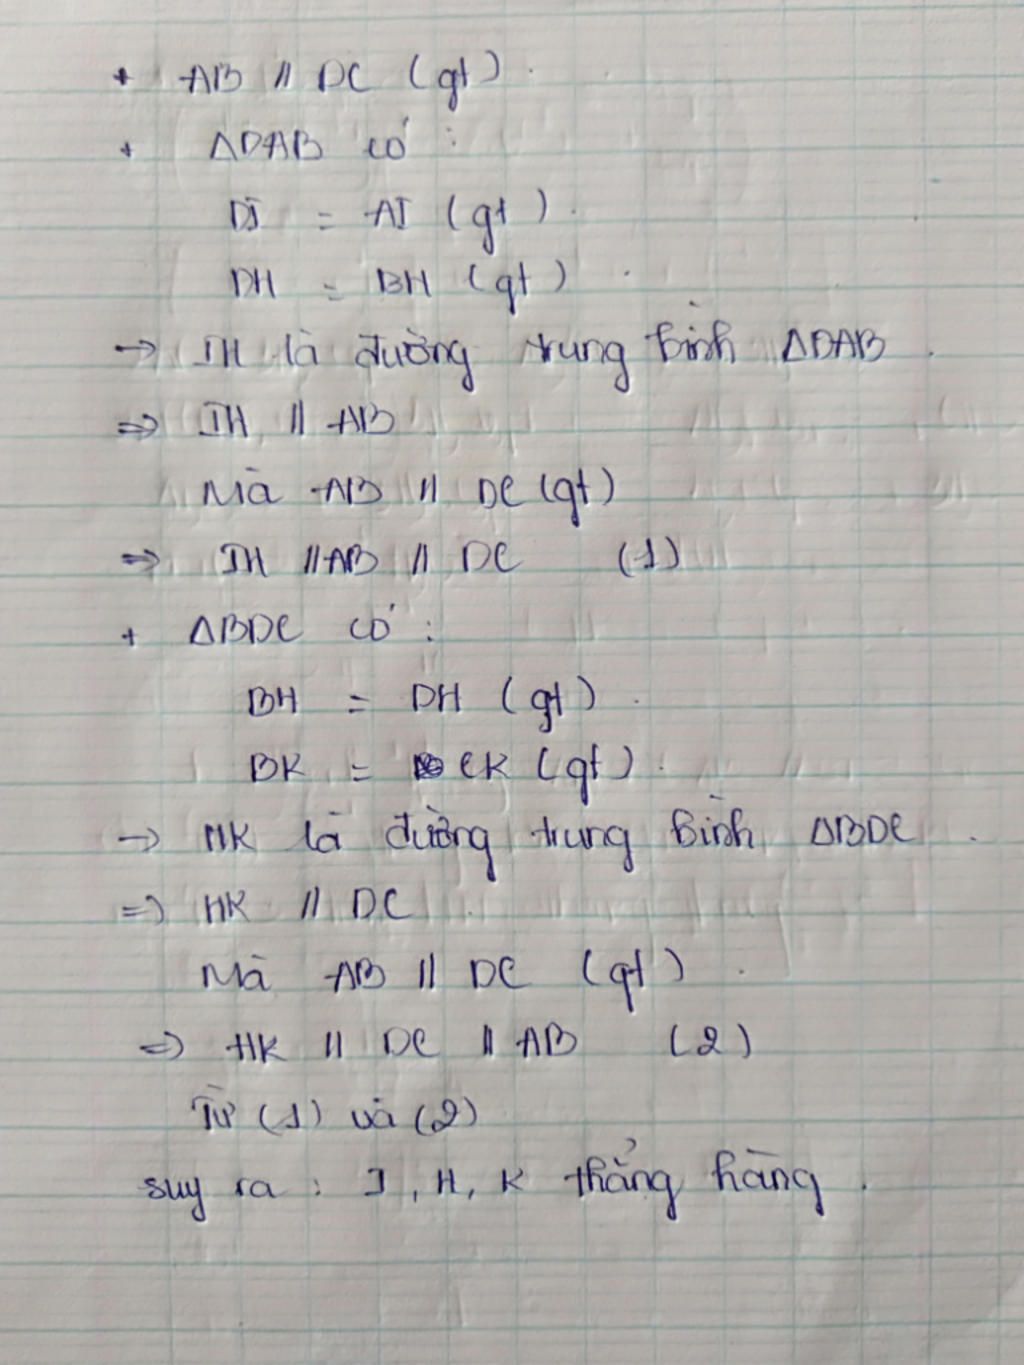 + AB // DC (gt).
+ ΔDAB có :
DI = AI (gt).
DH = BH (gt).
→ IH là đường trung bình ΔDAB.
⇒ IH // AB
Mà AB // DC (gt)
⇒ IH // AB // DC (1)
+ ΔBDC có :
BH = DH (gt).
BK = CK (gt).
→ HK là đường trung bình ΔBDC.
⇒ HK // DC
Mà AB // DC (gt).
⇒ HK // DC // AB (2)
Từ (1) và (2)
suy ra : I, H, K thẳng hàng.